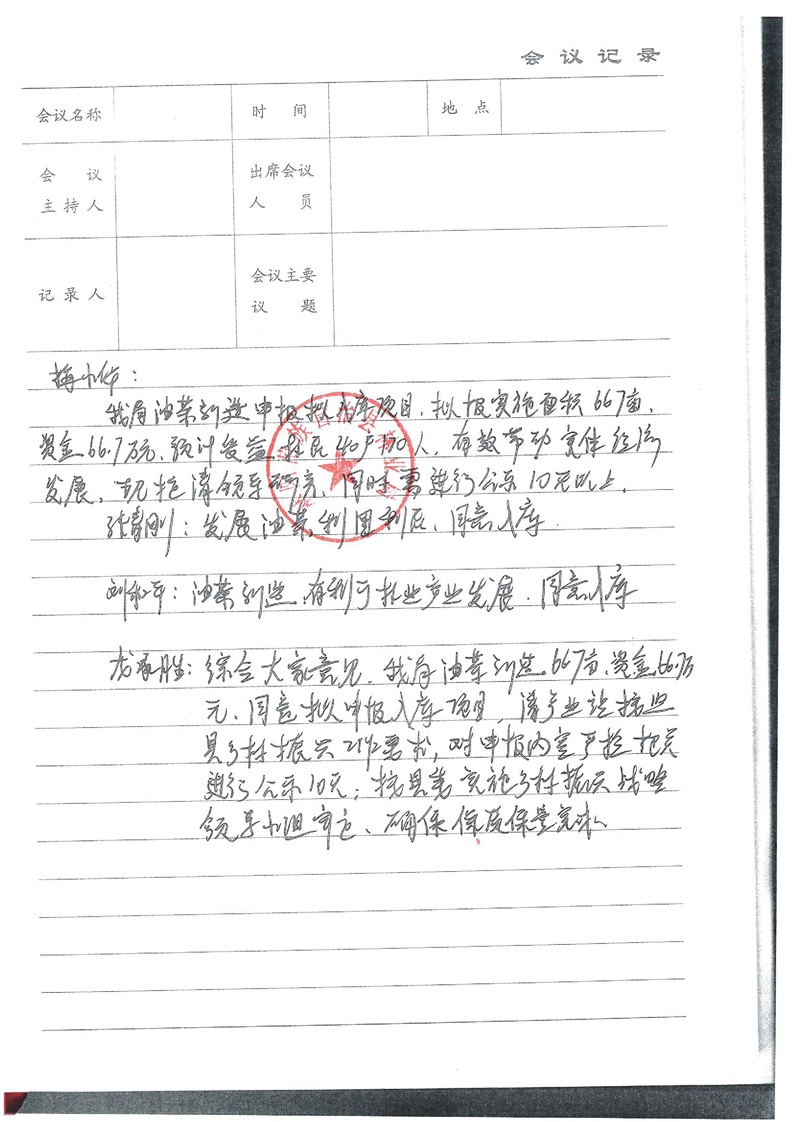 会议记录
会议名称 时间 地点
会议主持人 出席会议人员
记录人 会议主要议题
梅小华：
我局油茶新造申报拟入库项目，拟报实施面积667亩，
资金66.7万元，预计受益 居民40户170人，有效带动集体经济
发展，现提请领导研究，同时需进行公示10天以上。
张青刚：发展油茶，利国利民，同意入库
刘和平：油茶新造，有利于林业产业发展，同意入库
龙 胜：综合大家意见，我局油茶新造667亩，资金66.7万
元，同意拟申报入库项目，请产业站按照
县乡村振兴 要求，对申报内容严格把关
进行公示10天；按县委实施乡村振兴战略
领导小组审定、确保保质保量完成。
族自治县林业